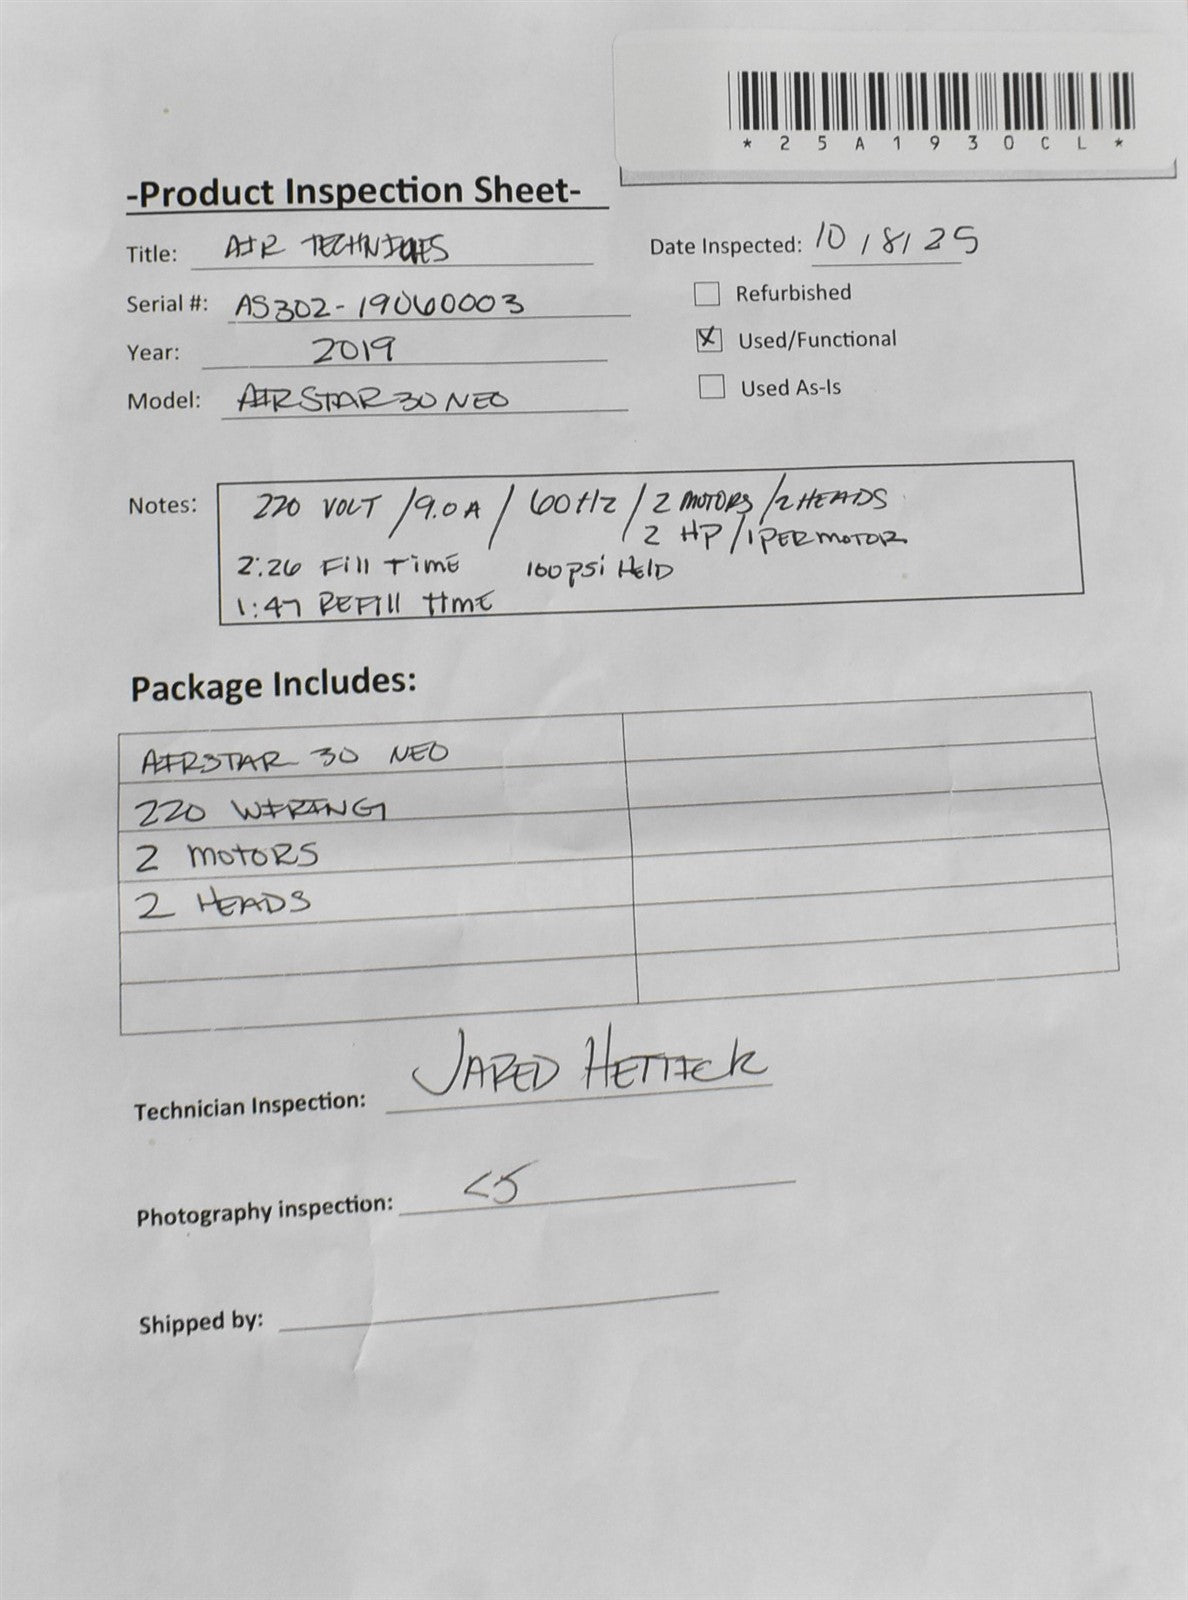 * 2 5 A 1 9 3 0 C L *
-Product Inspection Sheet-
Title: AIR TECHNIQUES
Date Inspected: 10/8/25
Refurbished
Serial #: AS302-19060003
X Used/Functional
Year: 2019
Used As-Is
Model: AIRSTAR 30 NEO
Notes: 220 VOLT /9.0A / 60Hz / 2 MOTORS / 2 HEADS
2 HP / 1 PER MOTOR
2:26 Fill Time 100 psi Held
1:47 REFill time
Package Includes:
AIRSTAR 30 NEO
220 WIRING
2 MOTORS
2 HEADS
Technician Inspection: JARED HETTICK
Photography inspection:
Shipped by: